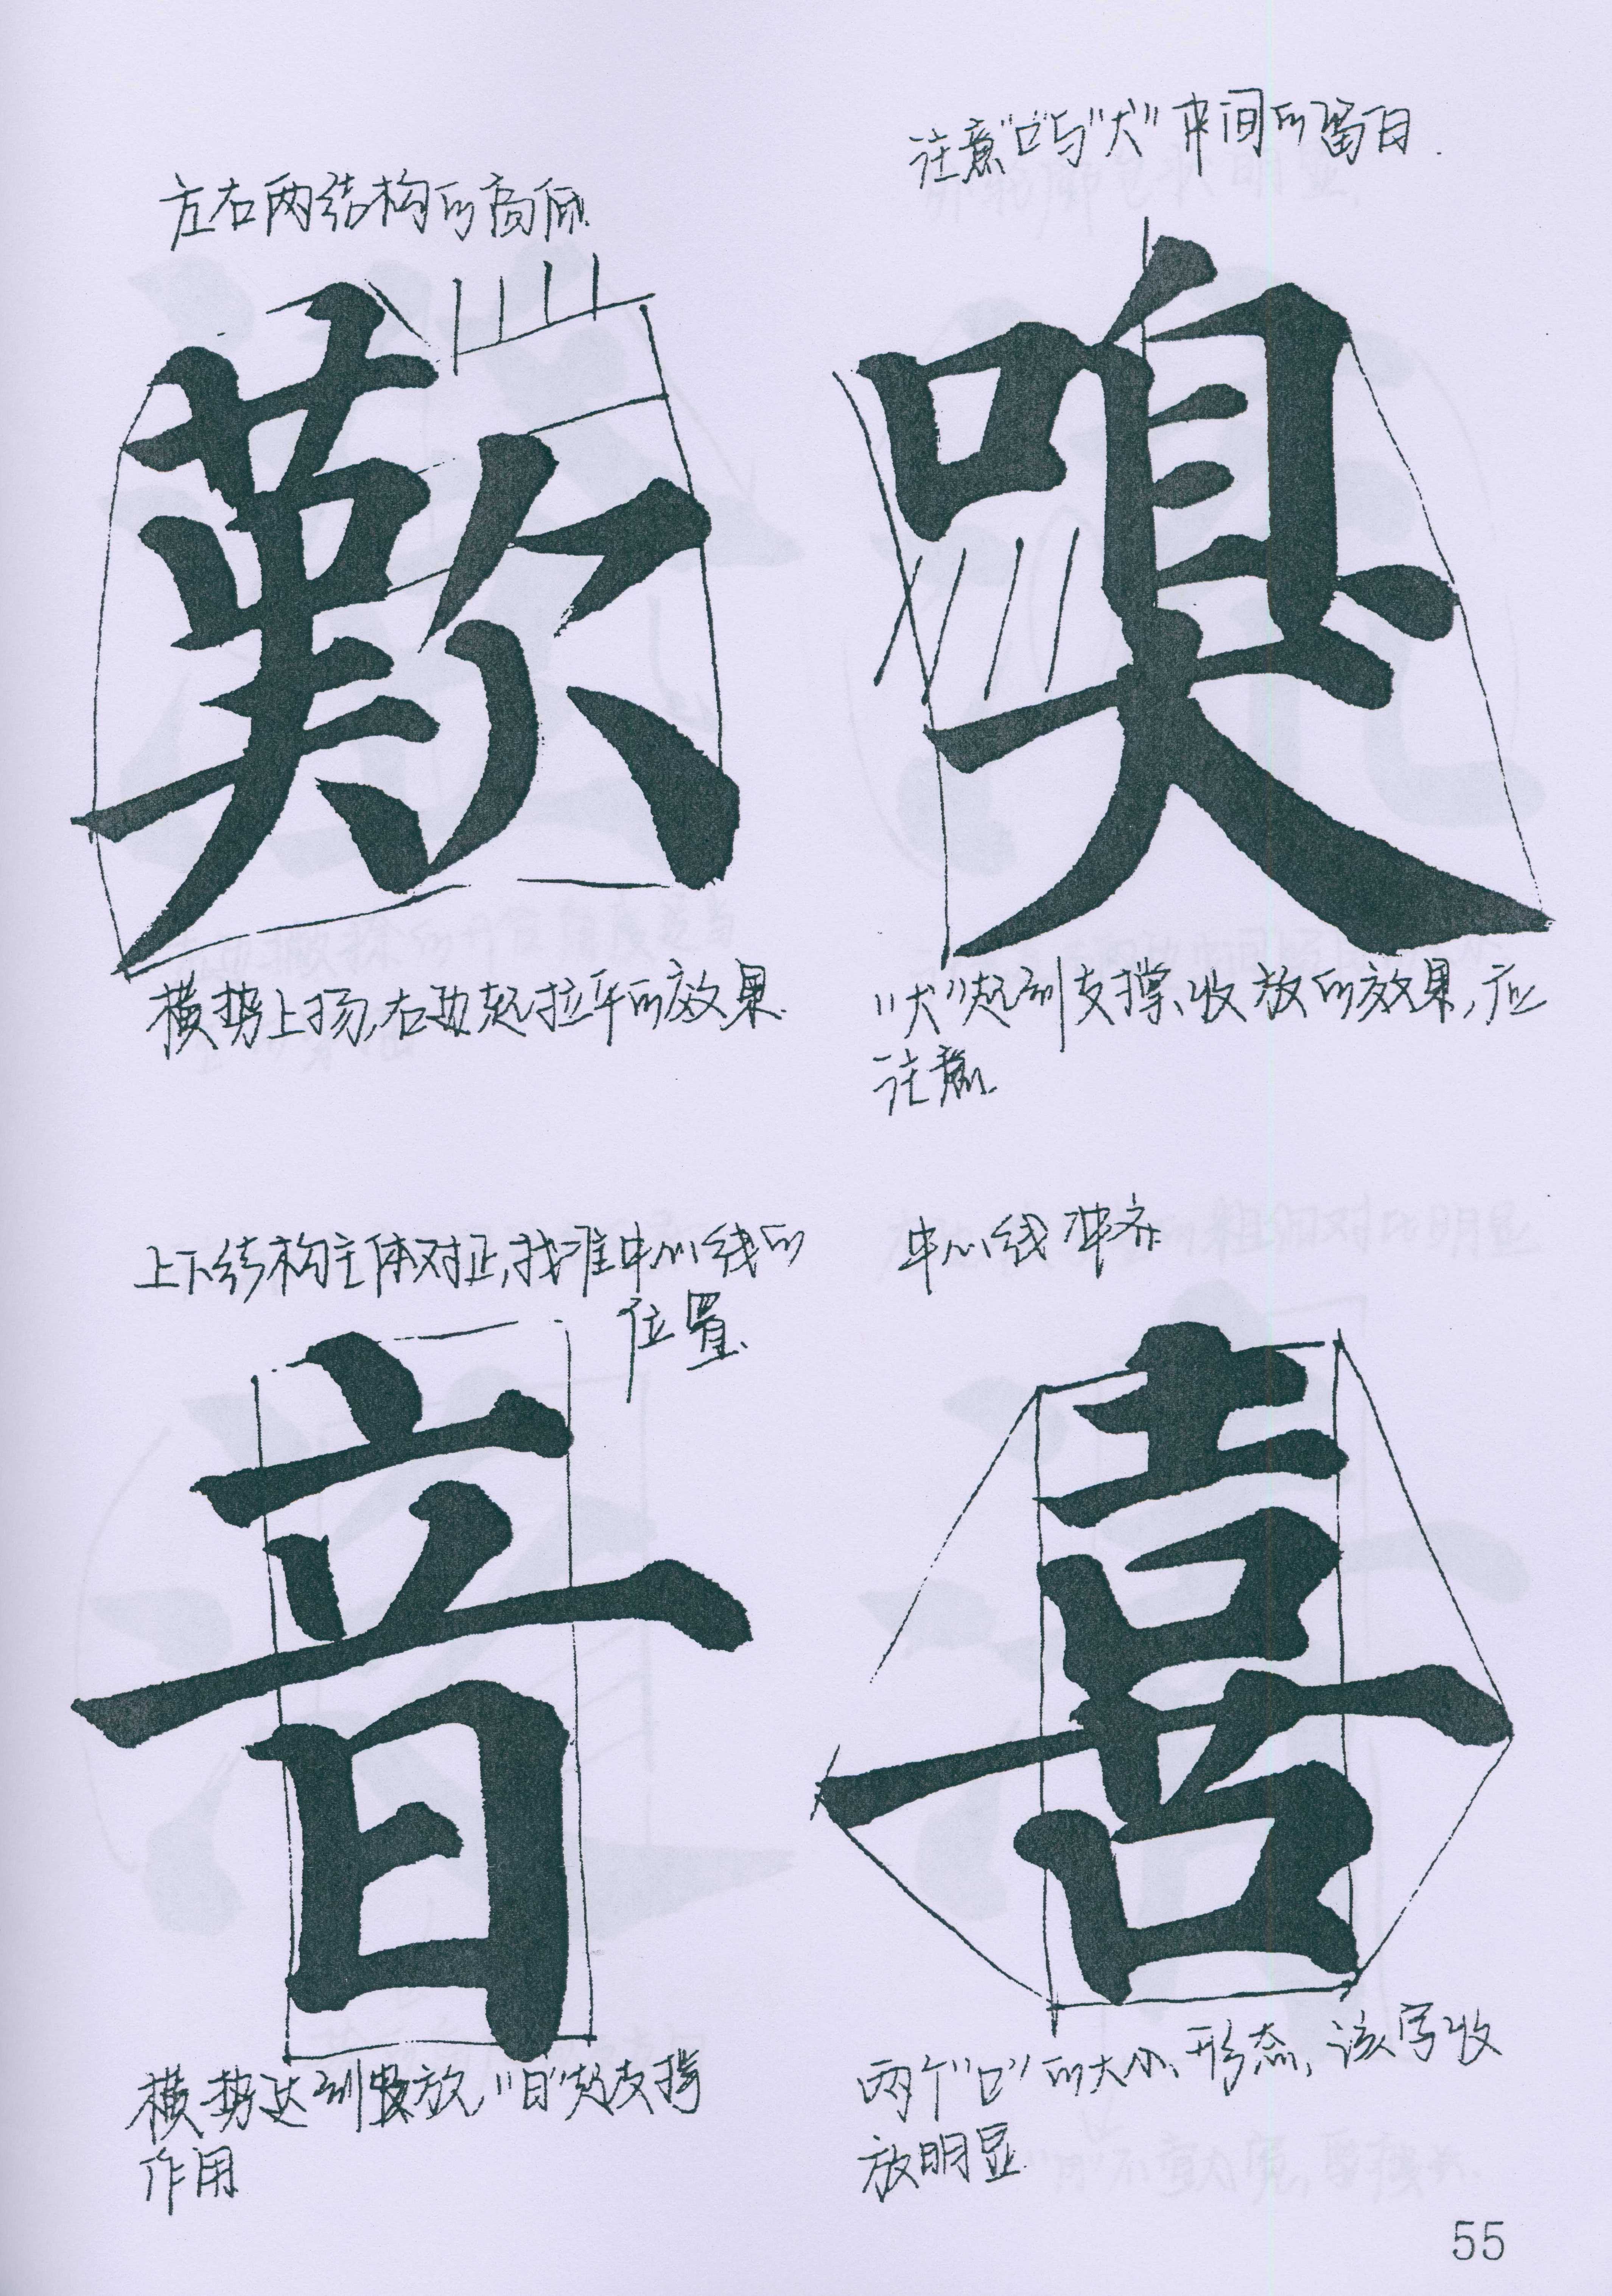 左右两结构的高低
歎
横势上扬,右边起拉平的效果.
注意"口"与"犬"中间的留白.
嗅
"犬"起到支撑、收放的效果,应
注意.
上下结构主体对正,找准中心线的
位置.
音
横势达到收放,"日"起支撑
作用
中心线对齐
喜
两个"口"的大小、形态,该字收
放明显.
55